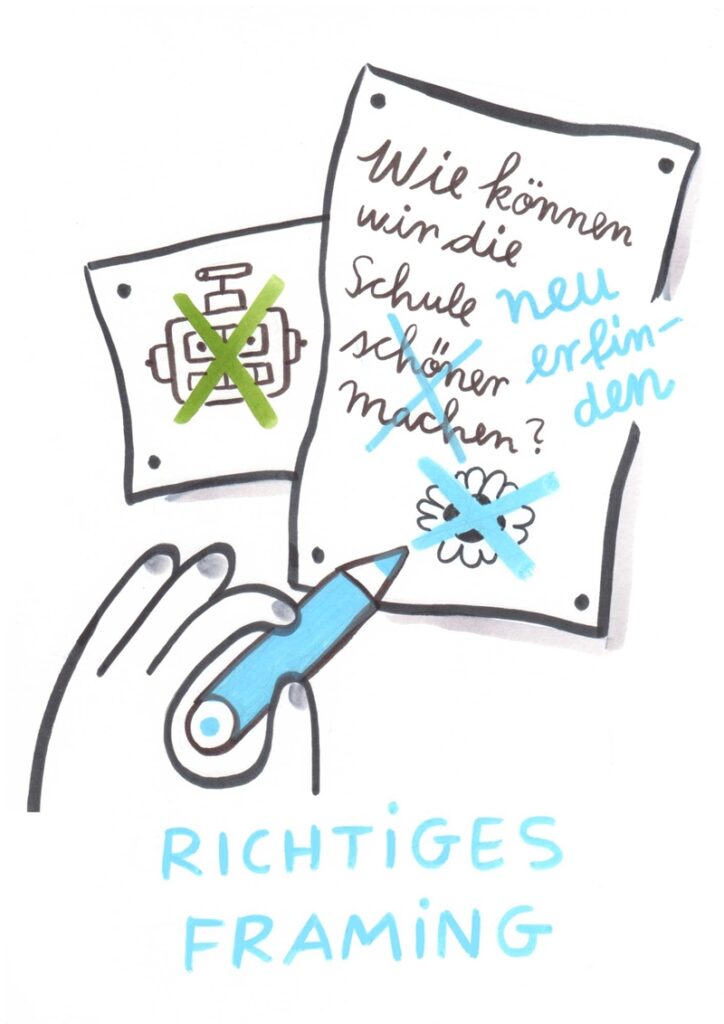 Wie können
wir die
Schule neu
schöner erfin-
machen? den
RICHTIGES
FRAMING